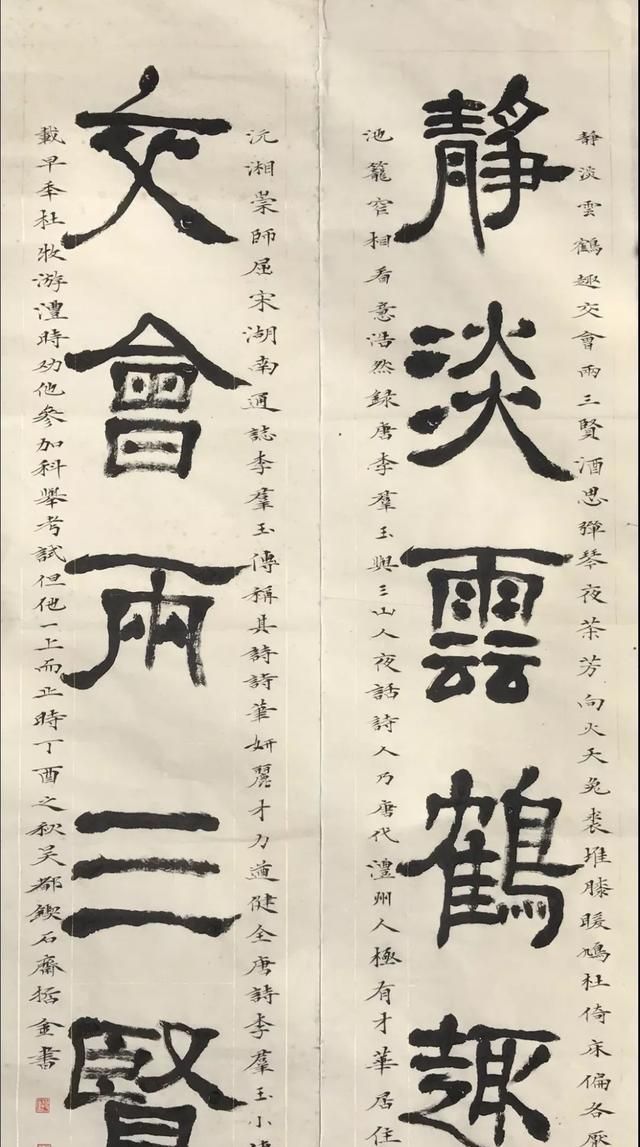 靜淡雲鶴趣交會兩三賢酒思彈琴夜茶芳向火天兔裘堆膝暖鳩杜倚床偏各厭
靜淡雲鶴趣
池籠窄相看意浩然錄唐李羣玉與三山人夜話詩人乃唐代澧州人極有才華居住
沅湘崇師屈宋湖南通誌李羣玉傳稱其詩詩筆妍麗才力遒健全唐詩李羣玉小傳
交會兩三賢
載早年杜牧游澧時劝他參加科舉考試但他一上而止時丁酉之秋吴都鍥石齋哲金書